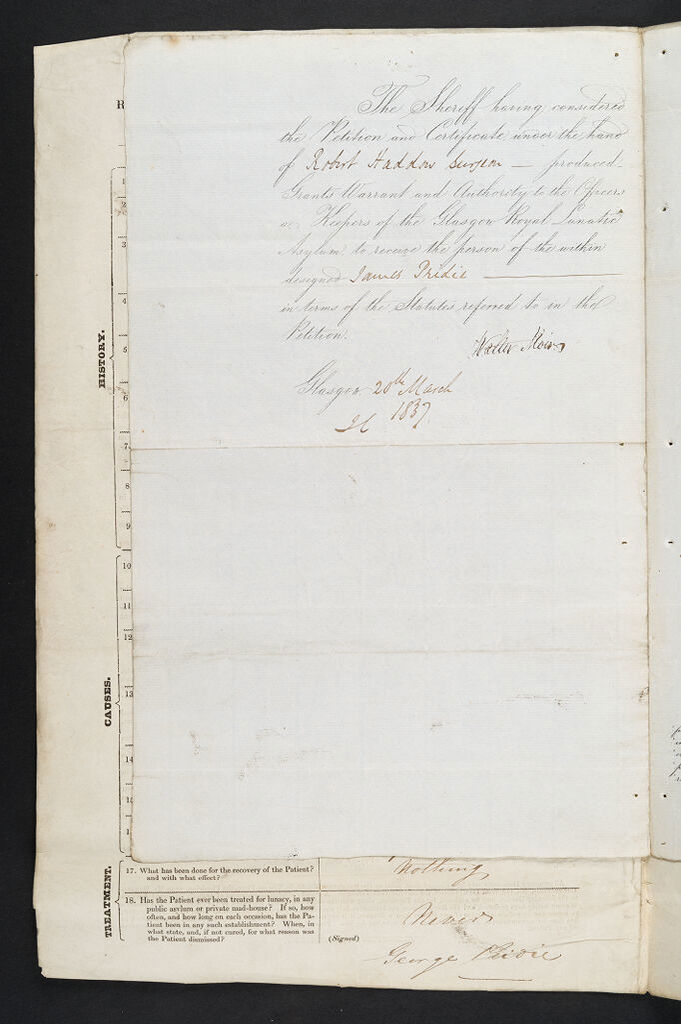 The Sheriff having considered
the Petition and Certificate under the hand
of Robert Haddow Surgeon — produced
Grants Warrant and Authority to the Officers
or Keepers of the Glasgow Royal Lunatic
Asylum to receive the person of the within
designed James Pridie
in terms of the Statutes referred to in the
Petition.
Walter Moir
Glasgow 20th March
1837
R
HISTORY.
1
2
3
4
5
6
7
8
9
CAUSES.
10
11
12
13
14
TREATMENT.
17. What has been done for the recovery of the Patient?
and with what effect?
Nothing
18. Has the Patient ever been treated for lunacy, in any
public asylum or private mad-house? If so, how
often, and how long on each occasion, has the Pa-
tient been in any such establishment? When, in
what state, and, if not cured, for what reason was
the Patient dismissed?
Never
(Signed)
George Pridie